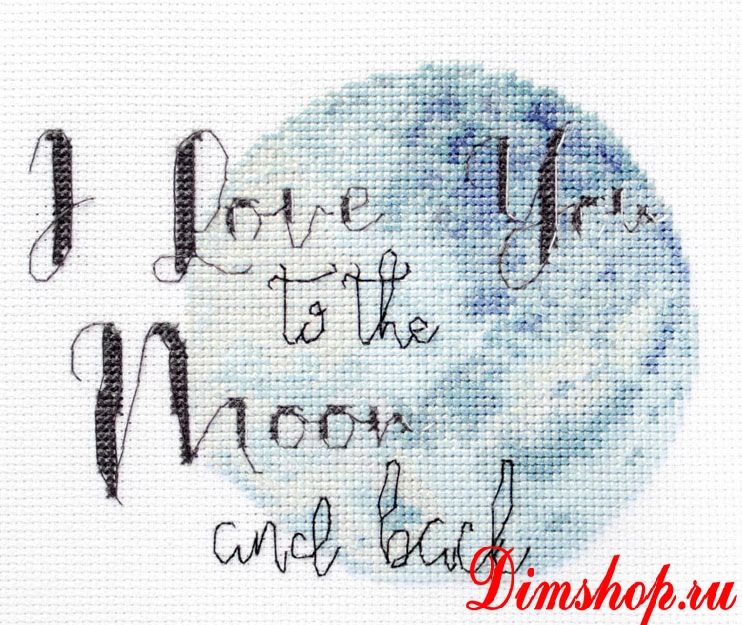 I Love You
to the
Moon
and back
Dimshop.ru